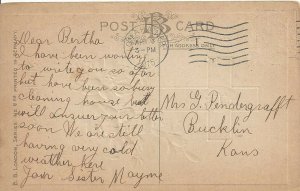 POST CARD
Dear Bertha
I have been wanting
to write you so often
but have been so busy
cleaning house but
will answer your letter
soon We are still
having very cold
weather here
Your Sister Mayme
Mrs G Pendergrafft
Bucklin
Kans